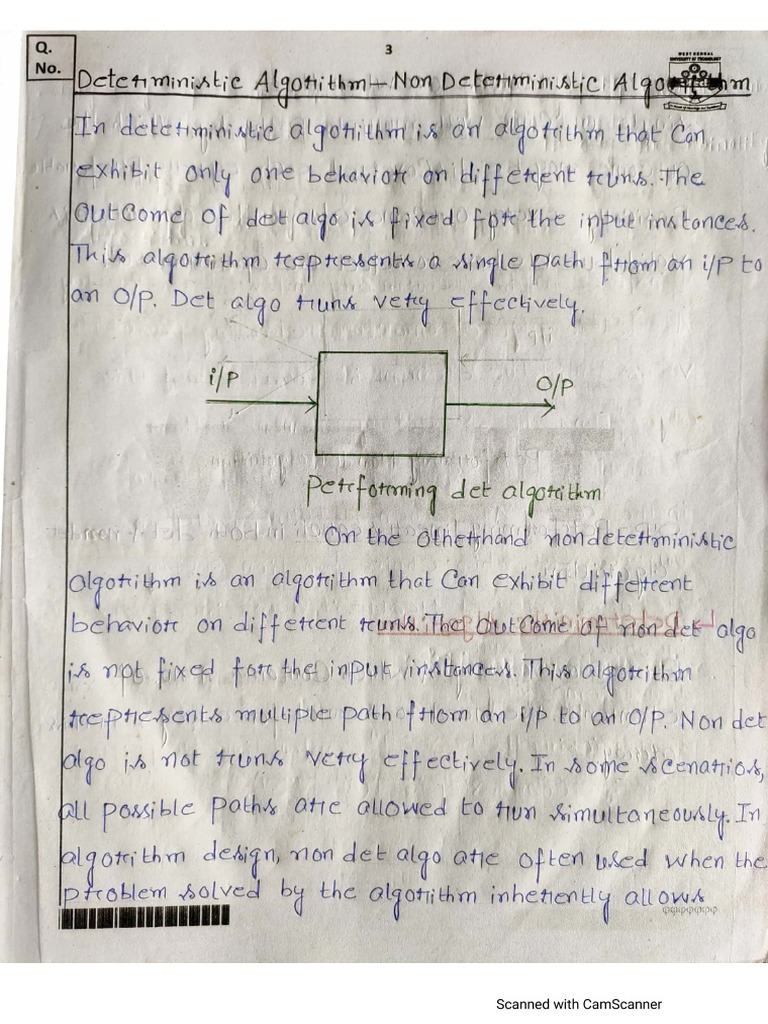 Q.
No.
3
WEST BENGAL
UNIVERSITY OF TECHNOLOGY
Deterministic Algorithm - Non Deterministic Algorithm
In deterministic algorithm is an algorithm that Can
exhibit only one behavior on different runs. The
OutCome of det algo is fixed for the input instances.
This algorithm represents a single path from an i/P to
an O/P. Det algo runs very effectively.
i/P
O/P
Performing det algorithm
On the otherhand nondeterministic
algorithm is an algorithm that Can exhibit different
behavior on different runs. The OutCome of non det algo
is not fixed for the input instances. This algorithm
represents multiple path from an i/p to an O/P. Non det
algo is not runs very effectively. In some scenarios,
all possible paths are allowed to run simultaneously. In
algorithm design, non det algo are often used when the
problem solved by the algorithm inherently allows
Scanned with CamScanner